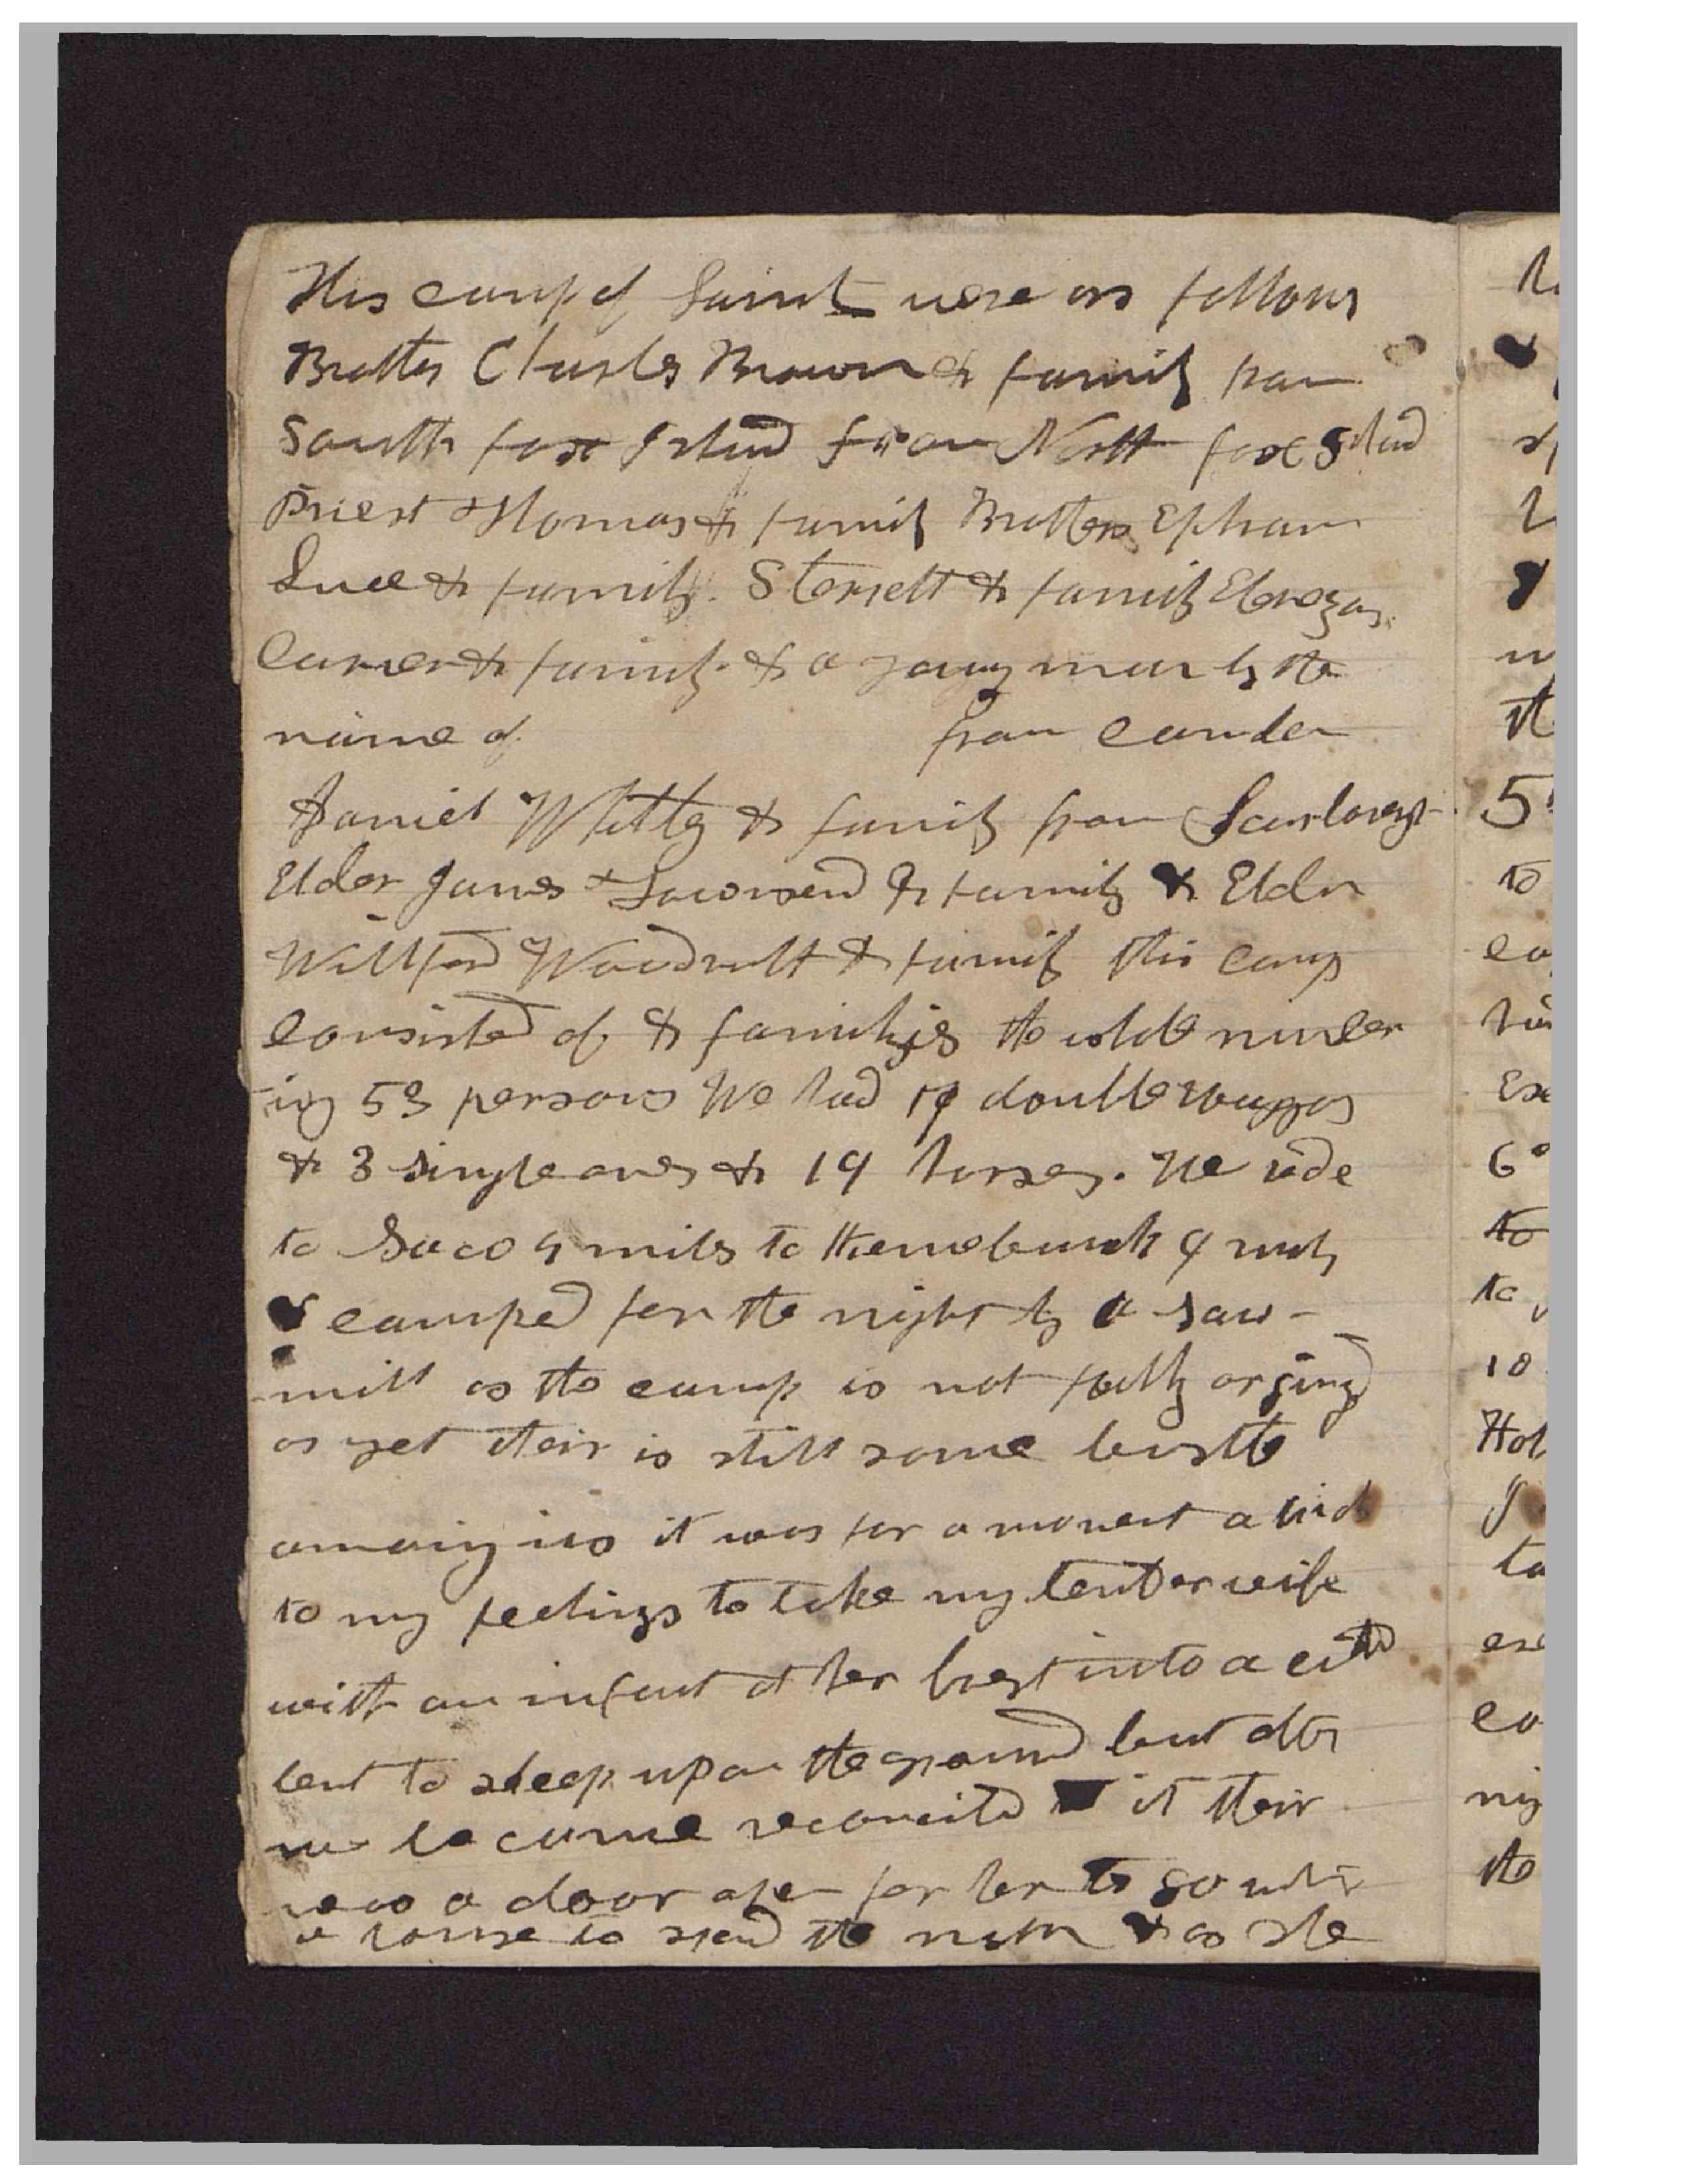 This camp of Saints were as follows
Brother Charles Brown & family from
South fox Island from North fox Island
Priest Thomas & family Brothers Ephram
Luce & family. Sterrett & family Ebenezar
Carver & family. & a young man by the
name of from Camden
Daniel Whitty & family from Scarborough
Elder James Townsend & family & Elder
Willford Woodruff & family this camp
consisted of families the whole number
-ing 53 persons We had double waggons
& 3 single ones & 19 horses. We rode
to Saco 4 miles to Kennebunk 9 miles
& camped for the night by a saw-
mill as the camp is not fully organized
as yet their is still some bustle
among us it was for a moment a trial
to my feelings to take my tender wife
with an infant at her brest into a cold
tent to sleep upon the ground but after
we became reconciled it their
was a door open for her to go into
a house to spend the night & as she
5
to
6
to
to
10
Hol
the